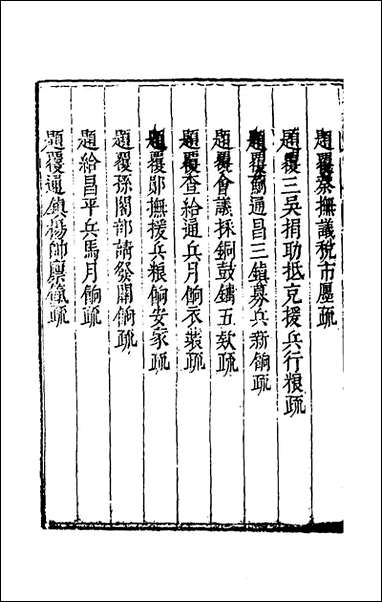 題覆秦撫議稅市廛疏
題覆三吳捐助抵充援兵行粮疏
題覆薊通昌三鎮募兵新餉疏
題覆會議採銅鼓鑄五欵疏
題覆查給通兵月餉衣裝疏
題覆鄖撫援兵粮餉安家疏
題覆孫閣部請發關餉疏
題給昌平兵馬月餉疏
題覆通鎮楊帥廪餼疏